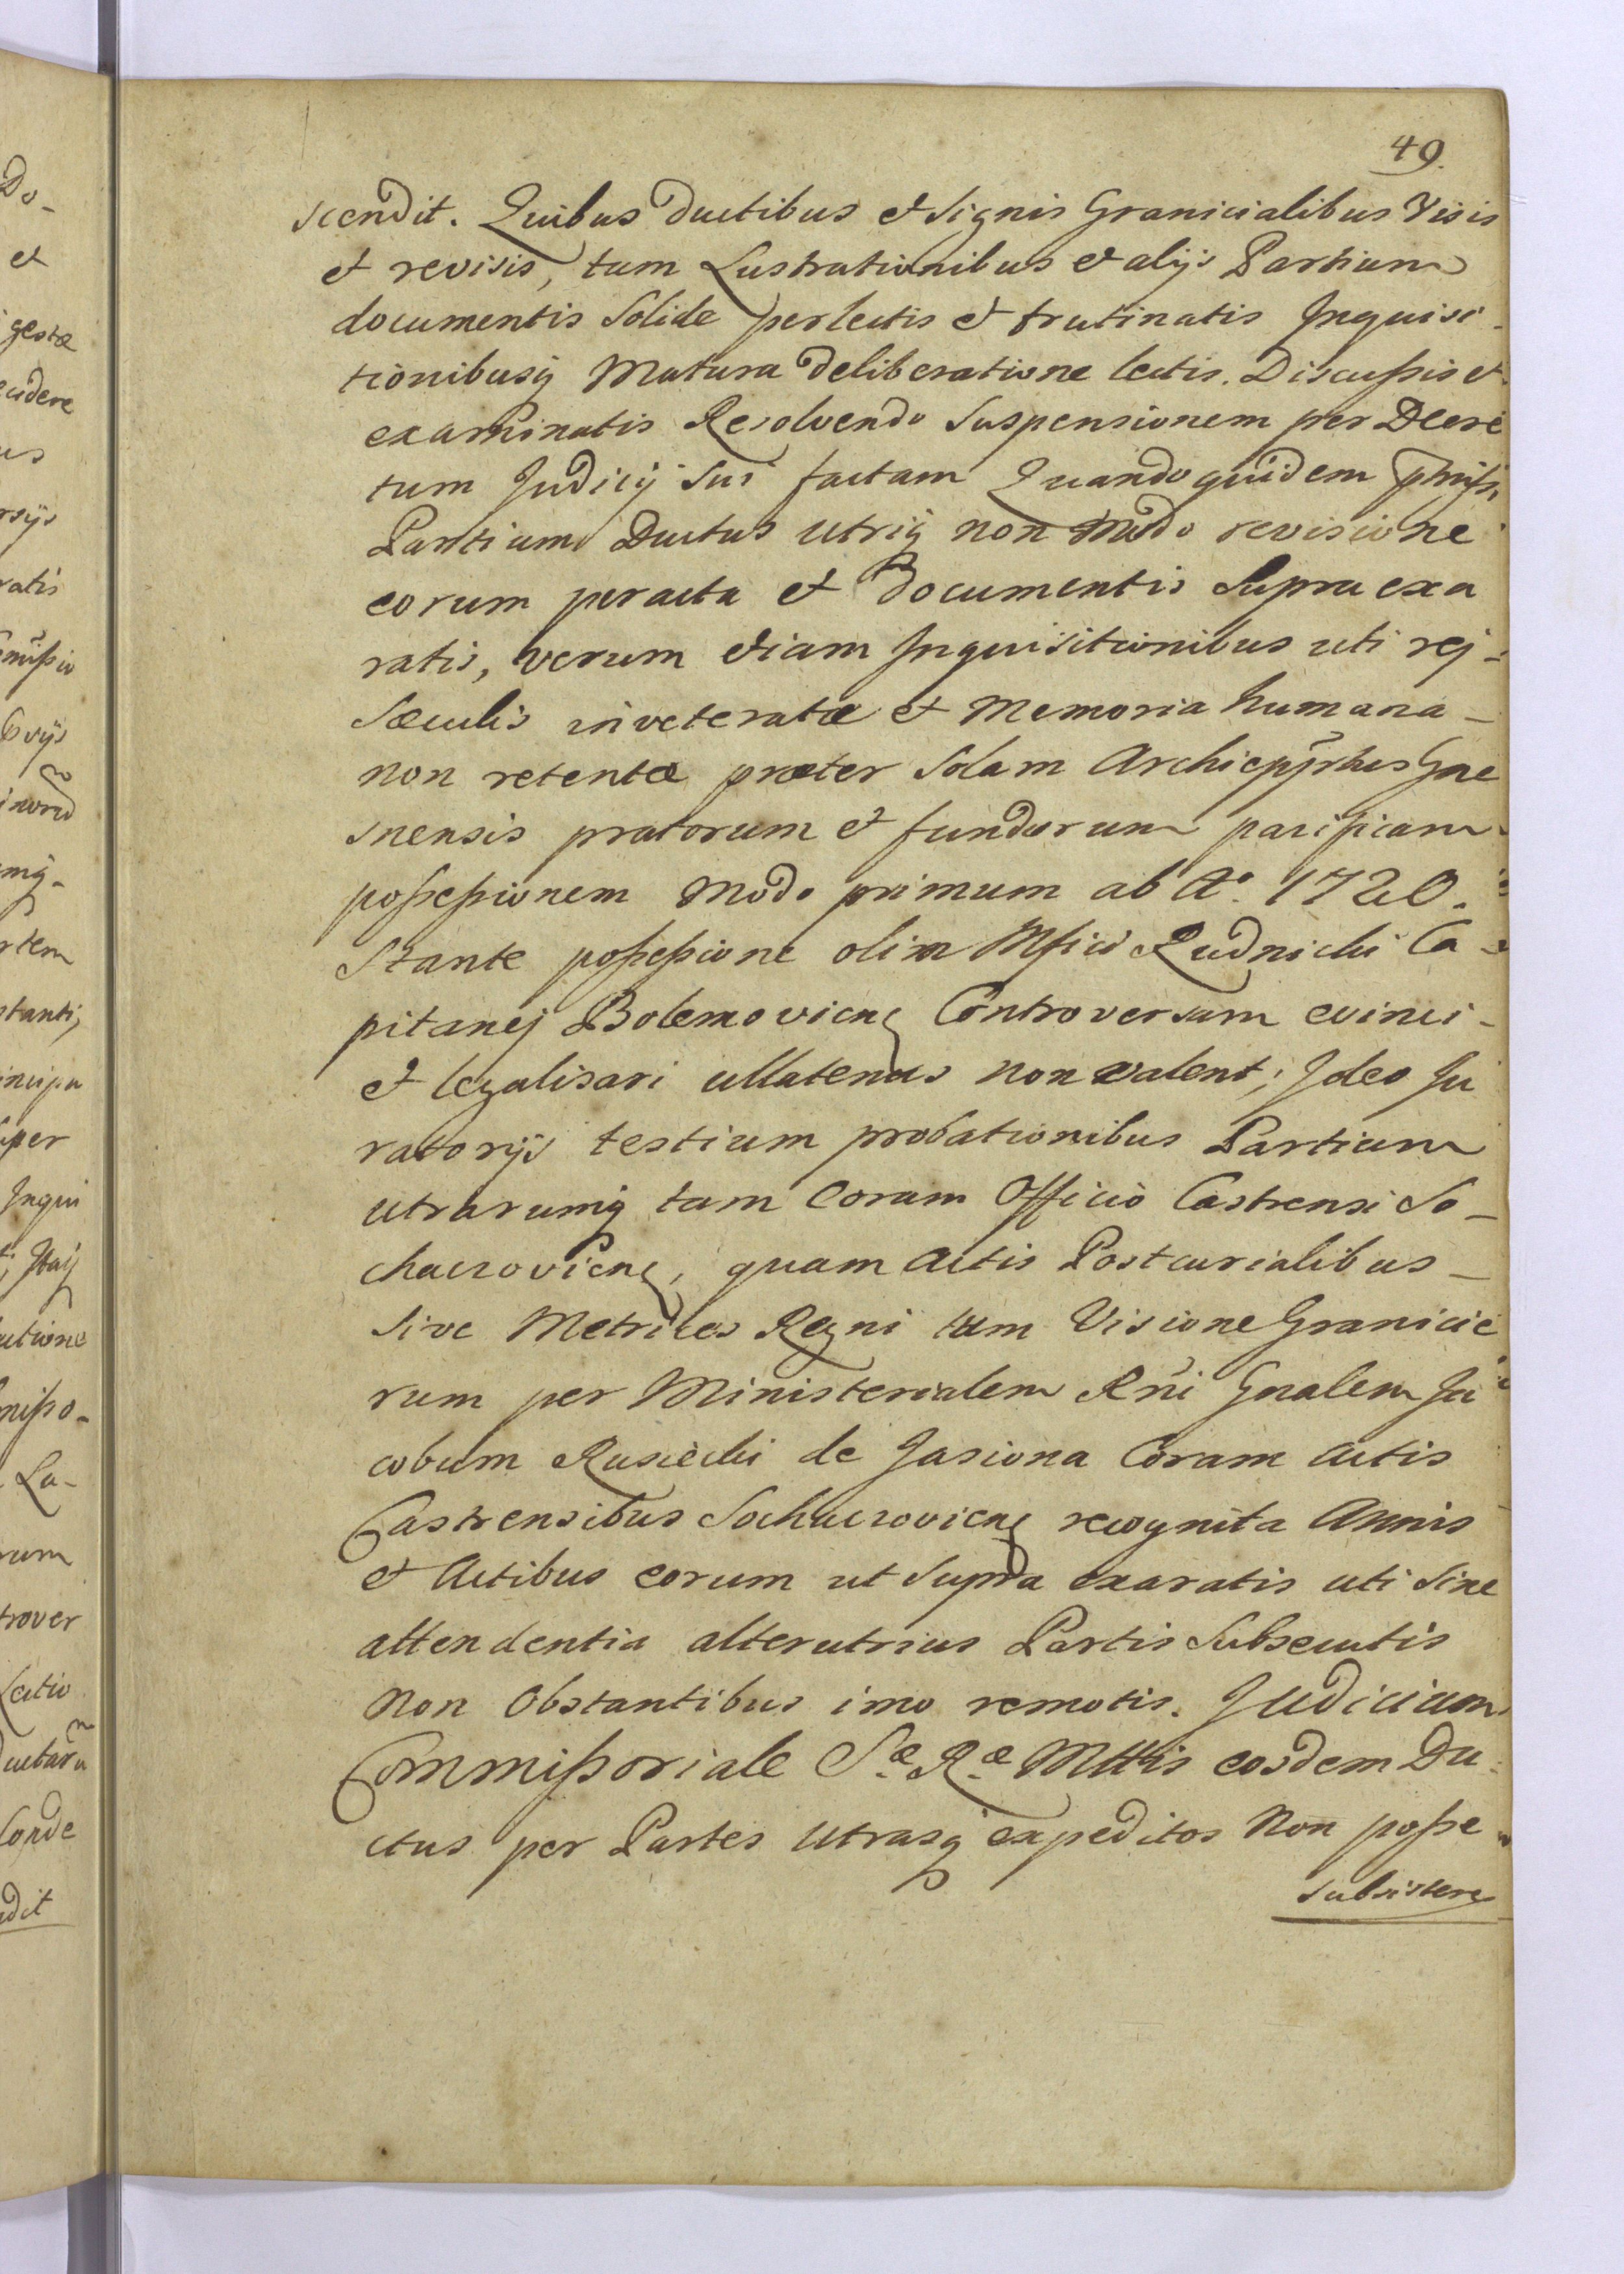 49.
scendit. Quibus Ductibus et Signis Granicialibus Visis
et revisis, tum Lustrationibus et alijs Partium
documentis Solide perlectis et trutinatis Inquisi-
tionibusq Matura Deliberatione lectis. Discußis et
examinatis Resolvendo Suspensionem per Decre
tum Judicij Sui factam Quandoquidem
Partium Ductus utriq non modo revisione
eorum peracta et Documentis Supra exa
ratis, verum etiam Inquisitionibus uti rej-
Sæculis inveteratæ et Memoria humana-
non retentæ præter Solam Archiepprhus Gne
snensis pratorum et fundorum pacificam
poßeßionem Modo primum ab Aº. 1720.
Stante poßeßione olim Mfici Rudnicki Ca-
pitanej Bolemovicn Controversam evinci-
et legalisari ullatenus non valent; Ideo Ju
ratorijs testium probationibus Partium
utrarumq tam Coram Officio Castrensi So-
chaczovicn, quam Actis Postcurialibus-
Sive Metrices Regni tum Visione Granicie
rum per Ministerialem Rni Gnalem Ja
cobum Rusiecki de Jasiona Coram Actis
Castrensibus Sochaczovicn recognita Annis
et Actibus eorum ut Supra exaratis uti Sine
attendentia alterutrius Partis Subsecutis
Non Obstantibus imo remotis. Judicium
Commißoriale Sæ Ræ Mttis eosdem Du-
ctus per Partes Utrasq expeditos Non poße
Subsistere
Do-
et
gestæ
cidere
rsijs
ratis
rtem
stanti,
incipa
uper
Inqui
utione
mißo-
La-
rum
trover
Lectio
Conde
dit